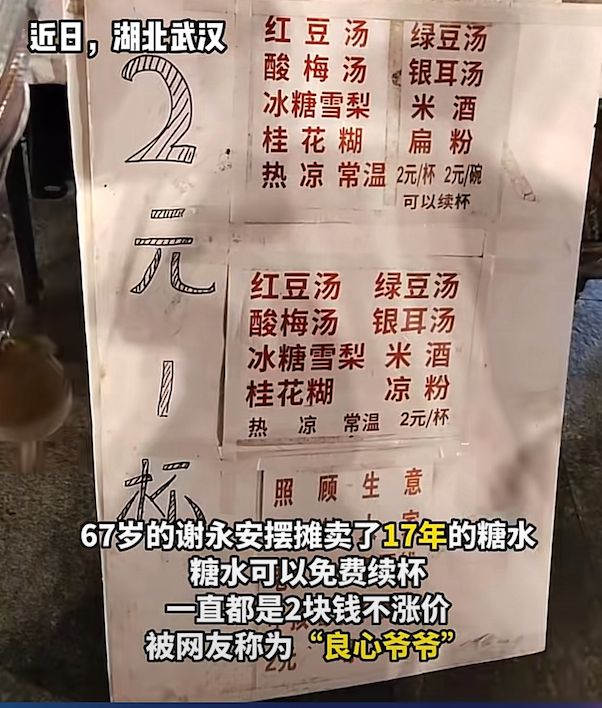 近日，湖北武汉
2元1杯
红豆汤 绿豆汤
酸梅汤 银耳汤
冰糖雪梨 米酒
桂花糊 扁粉
热 凉 常温 2元/杯 2元/碗
可以续杯
红豆汤 绿豆汤
酸梅汤 银耳汤
冰糖雪梨 米酒
桂花糊 凉粉
热 凉 常温 2元/杯
照顾生意
67岁的谢永安摆摊卖了17年的糖水
糖水可以免费续杯
一直都是2块钱不涨价
被网友称为“良心爷爷”
2元